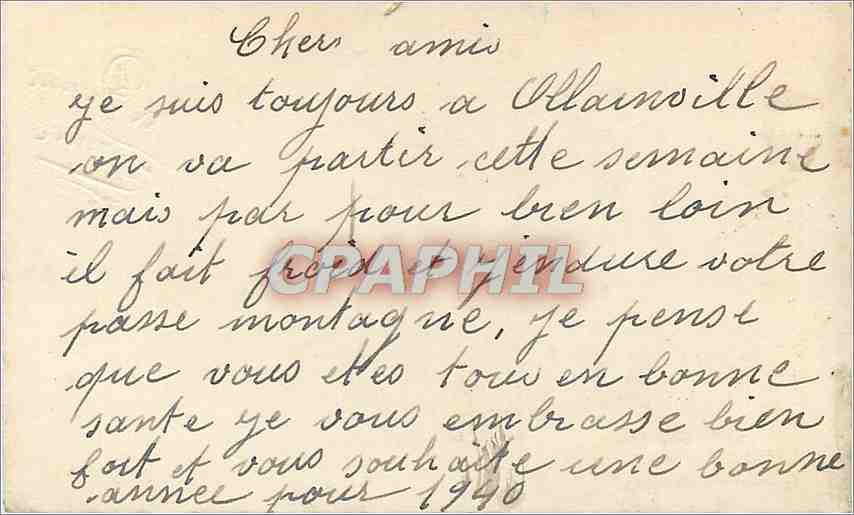 Chers amis
je suis toujours a Ollainville
on va partir cette semaine
mais par pour bien loin
il fait froid et j'endure votre
CPAPHIL
passe montagne, je pense
que vous etes tous en bonne
sante je vous embrasse bien
fort et vous souhaite une bonne
annee pour 1940